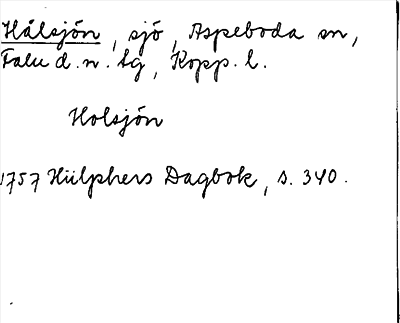 Hålsjön, sjö, Aspeboda sn,
Falu d.n. tg, Kopp. l.
Holsjön
1757 Hülphers Dagbok, s. 340.